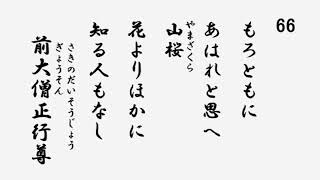 66
もろともに
あはれと思へ
やまざくら
山桜
花よりほかに
知る人もなし
さきのだいそうじょう
ぎょうそん
前大僧正行尊